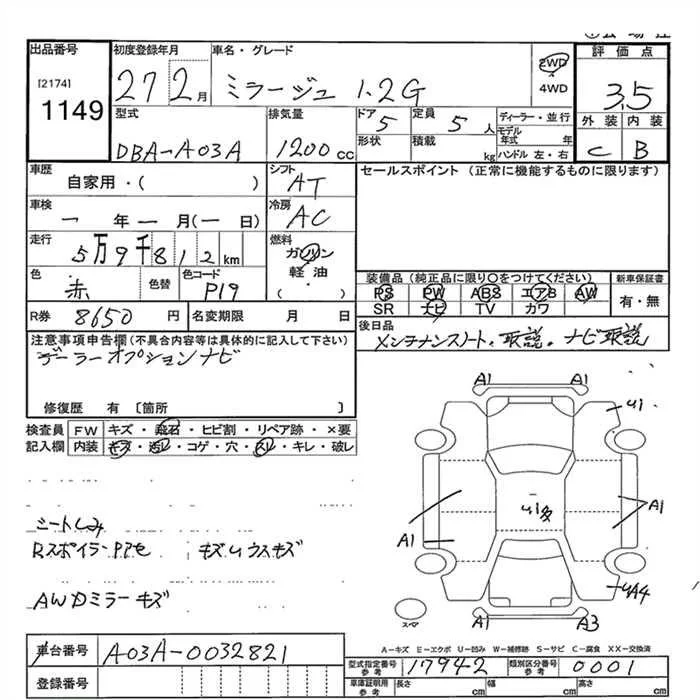 出品番号
[2174]
1149
初度登録年月
27 2月
車名・グレード
ミラージュ 1.2G
2WD
4WD
評価点
3.5
外装 内装
C B
型式
DBA-A03A
排気量
1200 cc
ドア
5
定員
5 人
形状
積載
kg
ディーラー・並行
モデル年式 年
ハンドル 左・右
車歴
自家用・( )
シフト
AT
セールスポイント(正常に機能するものに限ります)
車検
一 年 一 月(一 日)
冷房
AC
走行
5万9千812km
燃料
ガソリン
軽油
・( )
色
赤
色替
色コード
P19
装備品(純正品に限り○をつけてください)
新車保証書
PS PW ABS エアB AW
SR ナビ TV カワ
有・無
R券 8650 円
名変期限 月 日
後日品
メンテナンスノート、取説、ナビ取説
注意事項申告欄(不具合内容等は具体的に記入して下さい)
デーラーオプションナビ
修復歴 有 〔箇所 〕
検査員
記入欄
FW キズ・飛石・ヒビ割・リペア跡・×要
内装 キズ・汚レ・コゲ・穴・スレ・キレ・破レ
A1 A1
U1
A1
U1多
A1
UA4
スペア
A1 A3
シートしみ
Rスポイラー
キズ
ウスキズ
AWDミラーキズ
A-キズ E-エクボ U-凹み W-補修跡 S-サビ C-腐食 XX-交換済
車台番号 A03A-0032821
登録番号
型式指定番号
参考
17942
類別区分番号
参考
0001
車庫証明用
参考
長さ cm 幅 cm 高さ cm